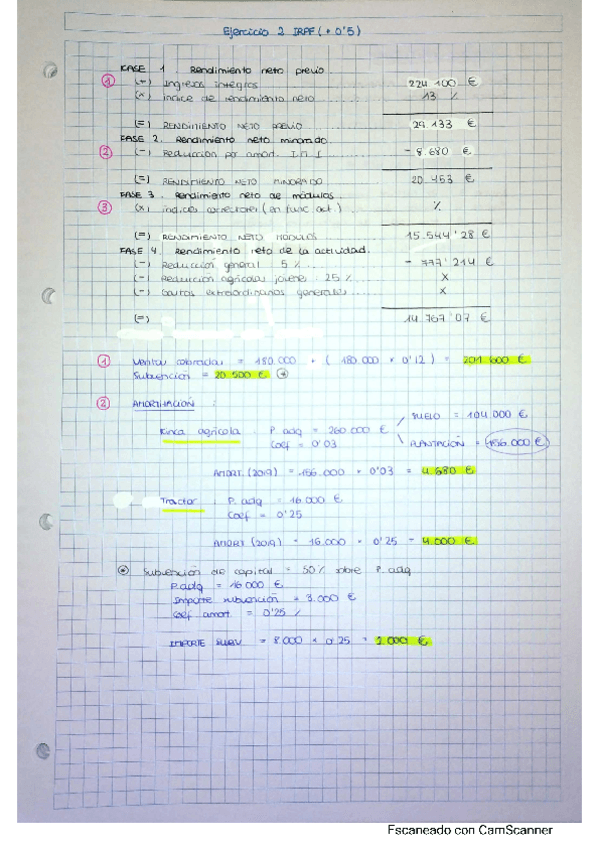 Ejercicio 2 IRPF (+ 0'5)
FASE 1 Rendimiento neto previo
① (+) Ingresos íntegros 224 100 €
(x) índice de rendimiento neto 13 %
(=) RENDIMIENTO NETO PREVIO 29 133 €
FASE 2. Rendimiento neto minorado
② (-) Reducción por amort. I.M.I - 8 680 €
(=) RENDIMIENTO NETO MINORADO 20 453 €
FASE 3. Rendimiento neto de módulos
③ (x) índices correctores (en func act.) %
(=) RENDIMIENTO NETO MÓDULOS 15.544'28 €
FASE 4. Rendimiento neto de la actividad.
(-) Reducción general 5 % - 777'214 €
(-) Reducción agricultores jóvenes 25 % x
(-) Gastos extraordinarios generales x
(=) 14 767'07 €
① Ventas cobradas = 180.000 + (180 000 x 0'12) = 201 600 €
Subvención = 20 500 € *
② AMORTIZACIÓN :
Finca agrícola P. adq = 260 000 € / SUELO = 104 000 €
Coef = 0'03 \ PLANTACIÓN = 156.000 €
AMORT. (2019) = 156.000 x 0'03 = 4.680 €
Tractor P. adq = 16.000 €
Coef = 0'25
AMORT (2019) = 16.000 x 0'25 = 4.000 €
* Subvención de capital = 50 % sobre P. adq
P.adq = 16 000 €
Importe subvención = 8.000 €
Coef amort. = 0'25 %
IMPORTE SUBV = 8.000 x 0'25 = 2.000 €
Escaneado con CamScanner